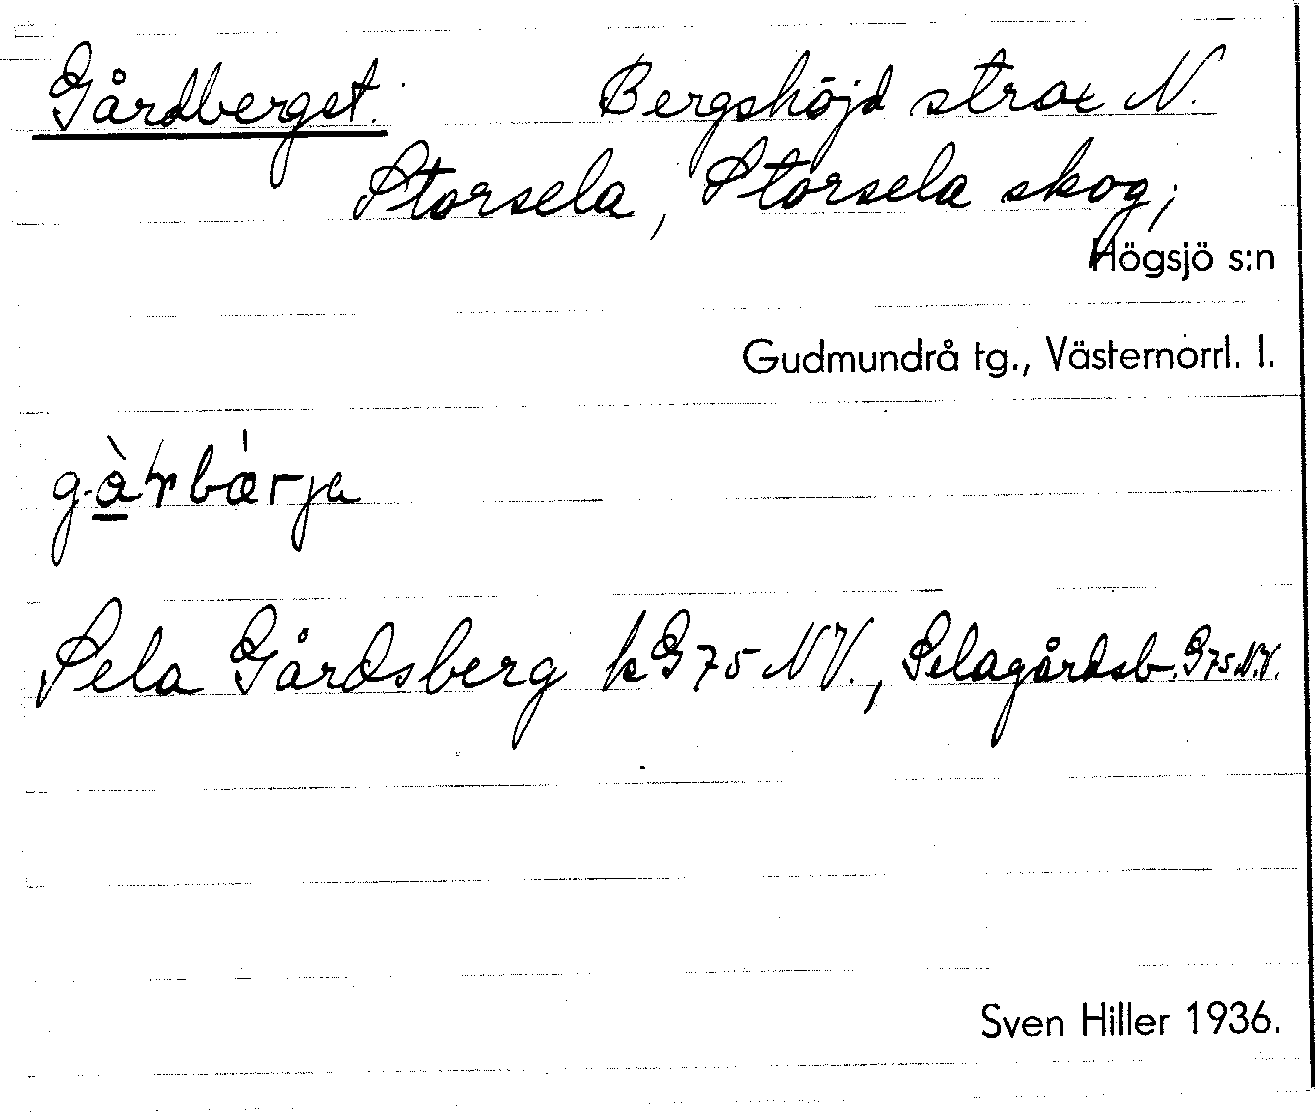 Gårdberget. Bergshöjd strax N.
Storsela, Storsela skog;
Högsjö s:n
Gudmundrå tg., Västernorrl. l.
Sela Gårdsberg k G75 NV., Selagårdsb. G75 N.V.
Sven Hiller 1936.